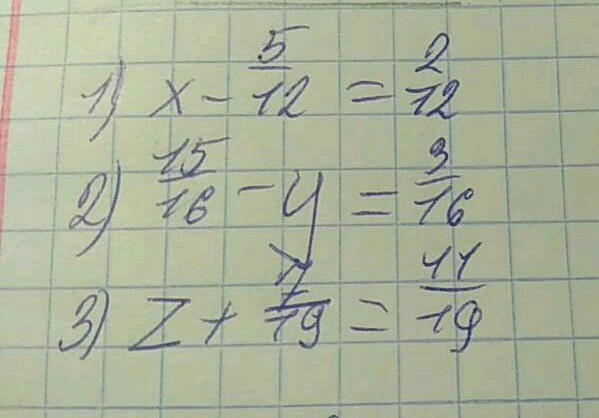 1) x - 5/12 = 2/12
2) 15/16 - y = 3/16
3) z + 7/19 = 11/19